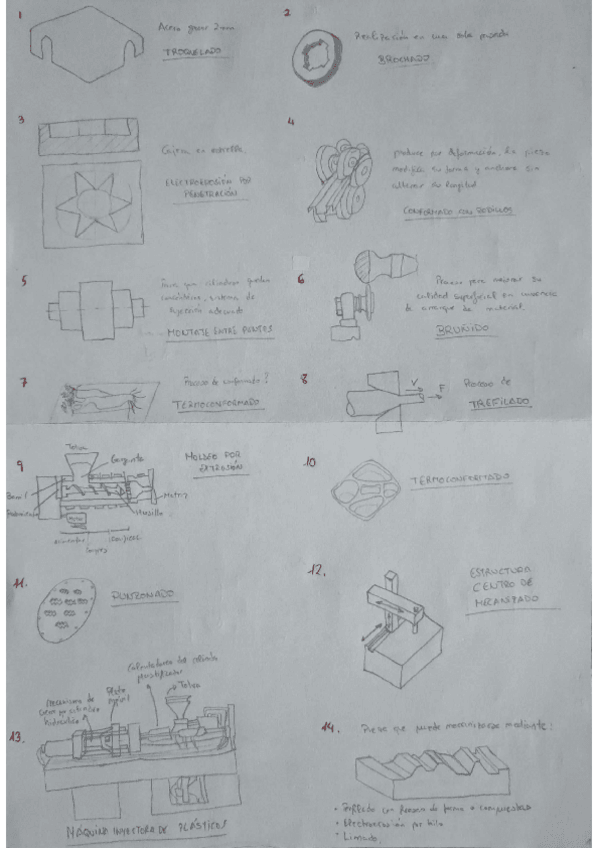 1
Acero grosor 2mm
TROQUELADO
2
Realización en una sola pasada
BROCHADO
3
Cajera en estrella
ELECTROEROSIÓN POR
PENETRACIÓN
4
produce por deformación. La pieza
modifica su forma y anchura sin
alterar su longitud
CONFORMADO CON RODILLOS
5
Para que cilindros queden
concéntricos, sistema de
sujeción adecuado
MONTAJE ENTRE PUNTOS
6
Proceso para mejorar su
calidad superficial en ausencia
de arranque de material.
BRUÑIDO
7
Proceso de conformado?
TERMOCONFORMADO
8
V
F
Proceso de
TREFILADO
9
Tolva
Garganta
Barril
Matriz
Husillo
MOLDEO POR
EXTRUSIÓN
10
TERMOCONFORMADO
11.
PUNZONADO
12.
ESTRUCTURA
CENTRO DE
MECANIZADO
13.
Mecanismo de
cierre por cilindro
hidráulico
Plato
Calefactores del cilindro
plastificador
Tolva
MÁQUINA INYECTORA DE PLÁSTICOS
14.
Pieza que puede mecanizarse mediante:
• Electroerosión por hilo
• Limado